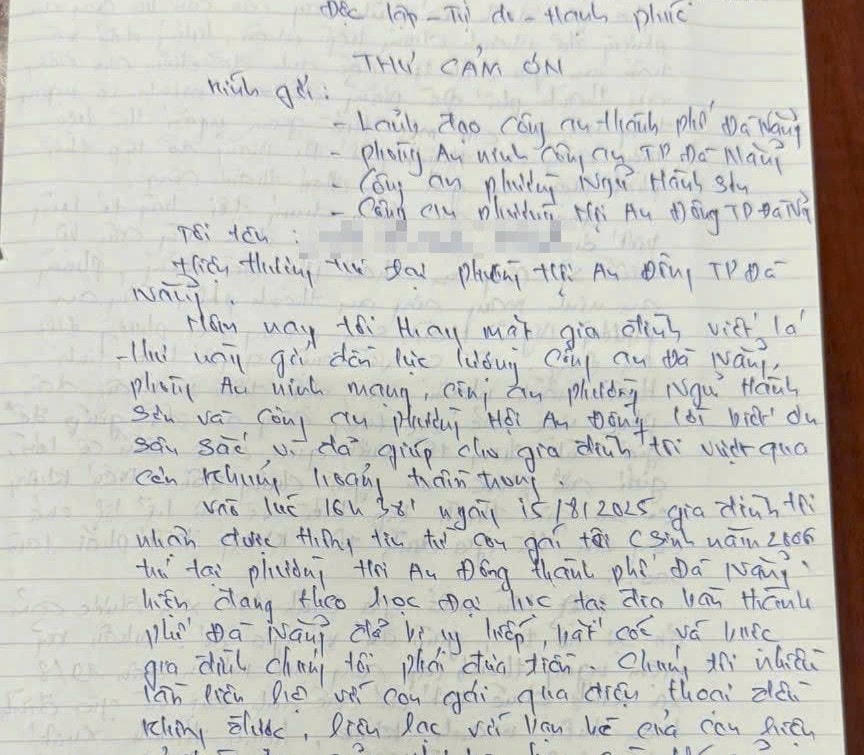 Độc lập - Tự do - Hạnh phúc
THƯ CẢM ƠN
Kính gửi:
- Lãnh đạo Công an thành phố Đà Nẵng
- Phòng An ninh Công an TP Đà Nẵng
- Công an phường Ngũ Hành Sơn
- Công an phường Hội An Đông TP Đà Nẵ
Tôi tên :
Hiện thường trú tại phường Hội An Đông TP Đà
Nẵng.
Hôm nay tôi thay mặt gia đình viết lá
thư này gửi đến lực lượng Công an Đà Nẵng,
phòng An ninh mạng, Công an phường Ngũ Hành
Sơn và Công an phường Hội An Đông lời biết ơn
sâu sắc vì đã giúp cho gia đình tôi vượt qua
cơn khủng hoảng trầm trọng.
vào lúc 16h38' ngày 15/8/2025 gia đình tôi
nhận được thông tin từ con gái tôi (Sinh năm 2006
trú tại phường Hội An Đông thành phố Đà Nẵng.
hiện đang theo học Đại học tại địa bàn thành
phố Đà Nẵng đã bị uy hiếp, bắt cóc và buộc
gia đình chúng tôi phải đưa tiền. Chúng tôi nhiều
lần liên hệ với con gái qua điện thoại đều
không được, liên lạc với bạn bè của con